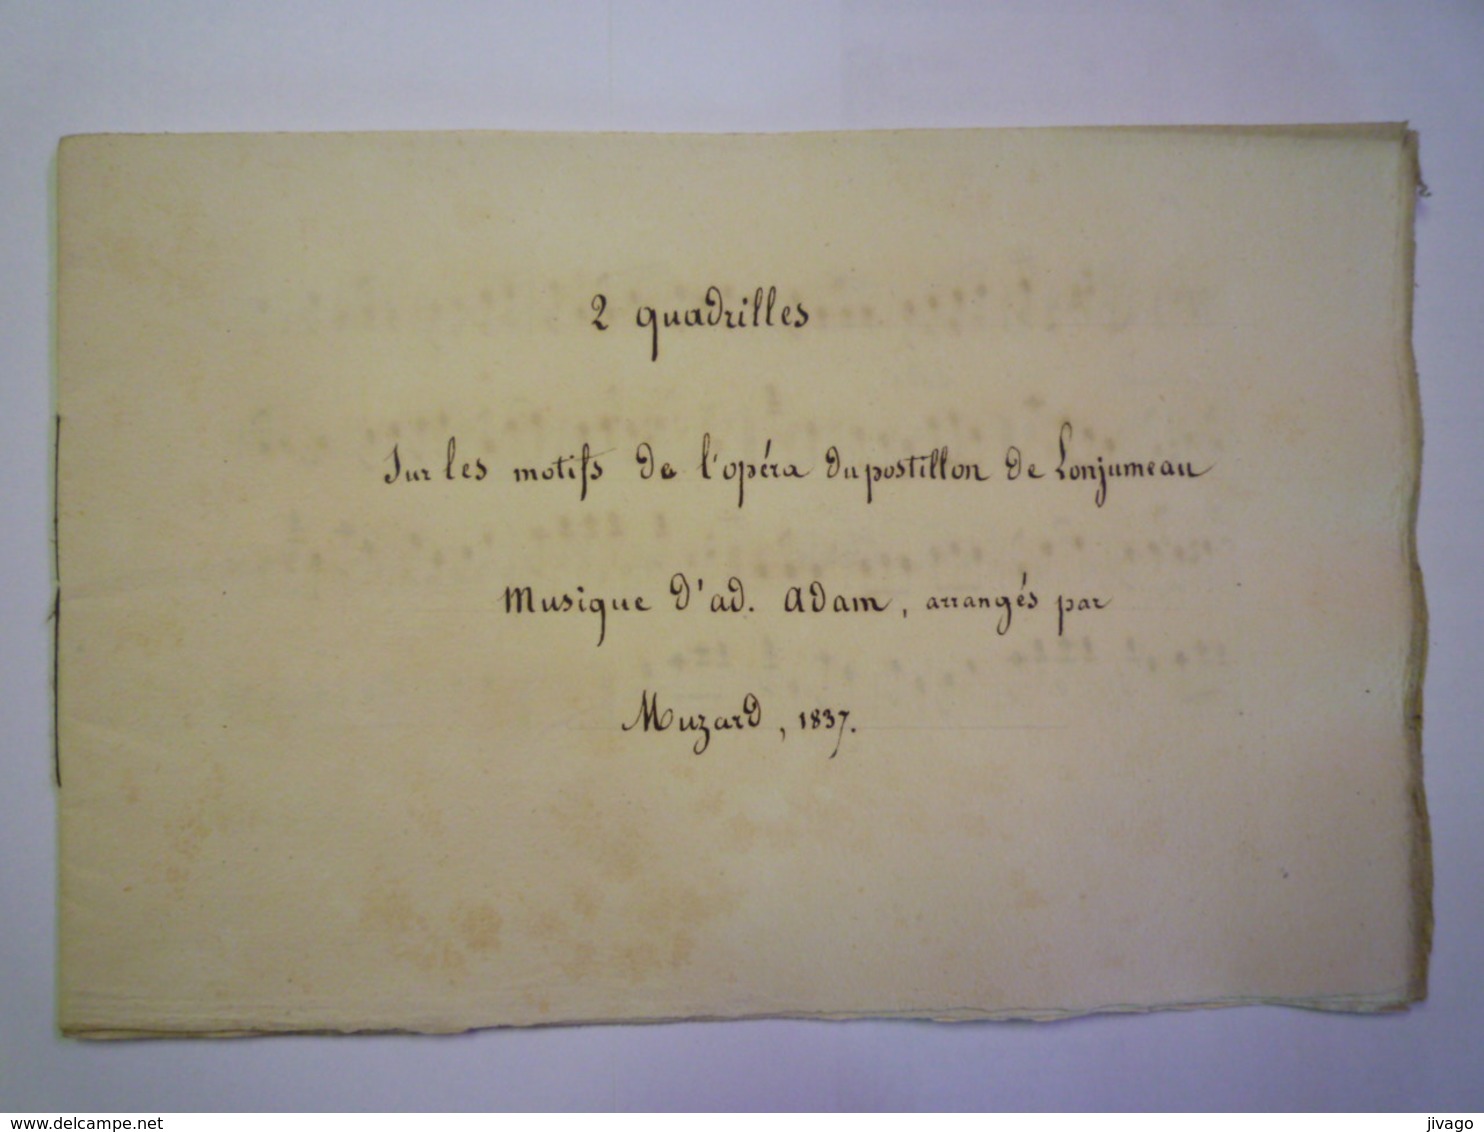 2 quadrilles
Sur les motifs de l'opéra du postillon de Lonjumeau
Musique d'ad. Adam, arrangés par
Muzard, 1837.
www.delcampe.net
jivago